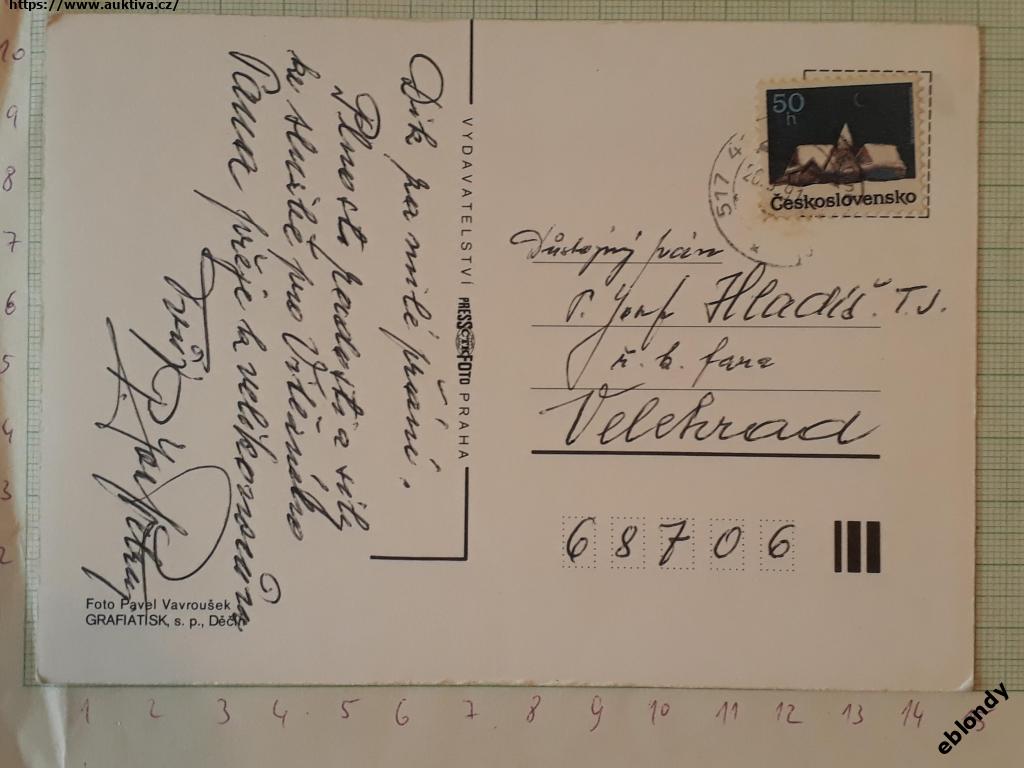 https://www.auktiva.cz/
Dík za milé přání.
Plnost radosti a síly
ke službě pro Vítězného
Pána přeje k velikonocům
Tvůj
P. Josef
VYDAVATELSTVÍ PRESSFOTO PRAHA
ČTK
Foto Pavel Vavroušek
GRAFIATISK, s. p., Děčín
50
h
Československo
517 4
Důstojný pán
P. Josef Hladiš T.J.
ř. k. fara
Velehrad
68706
10
9
8
7
6
5
4
3
2
1 2 3 4 5 6 7 8 9 10 11 12 13 14 15
eblondy